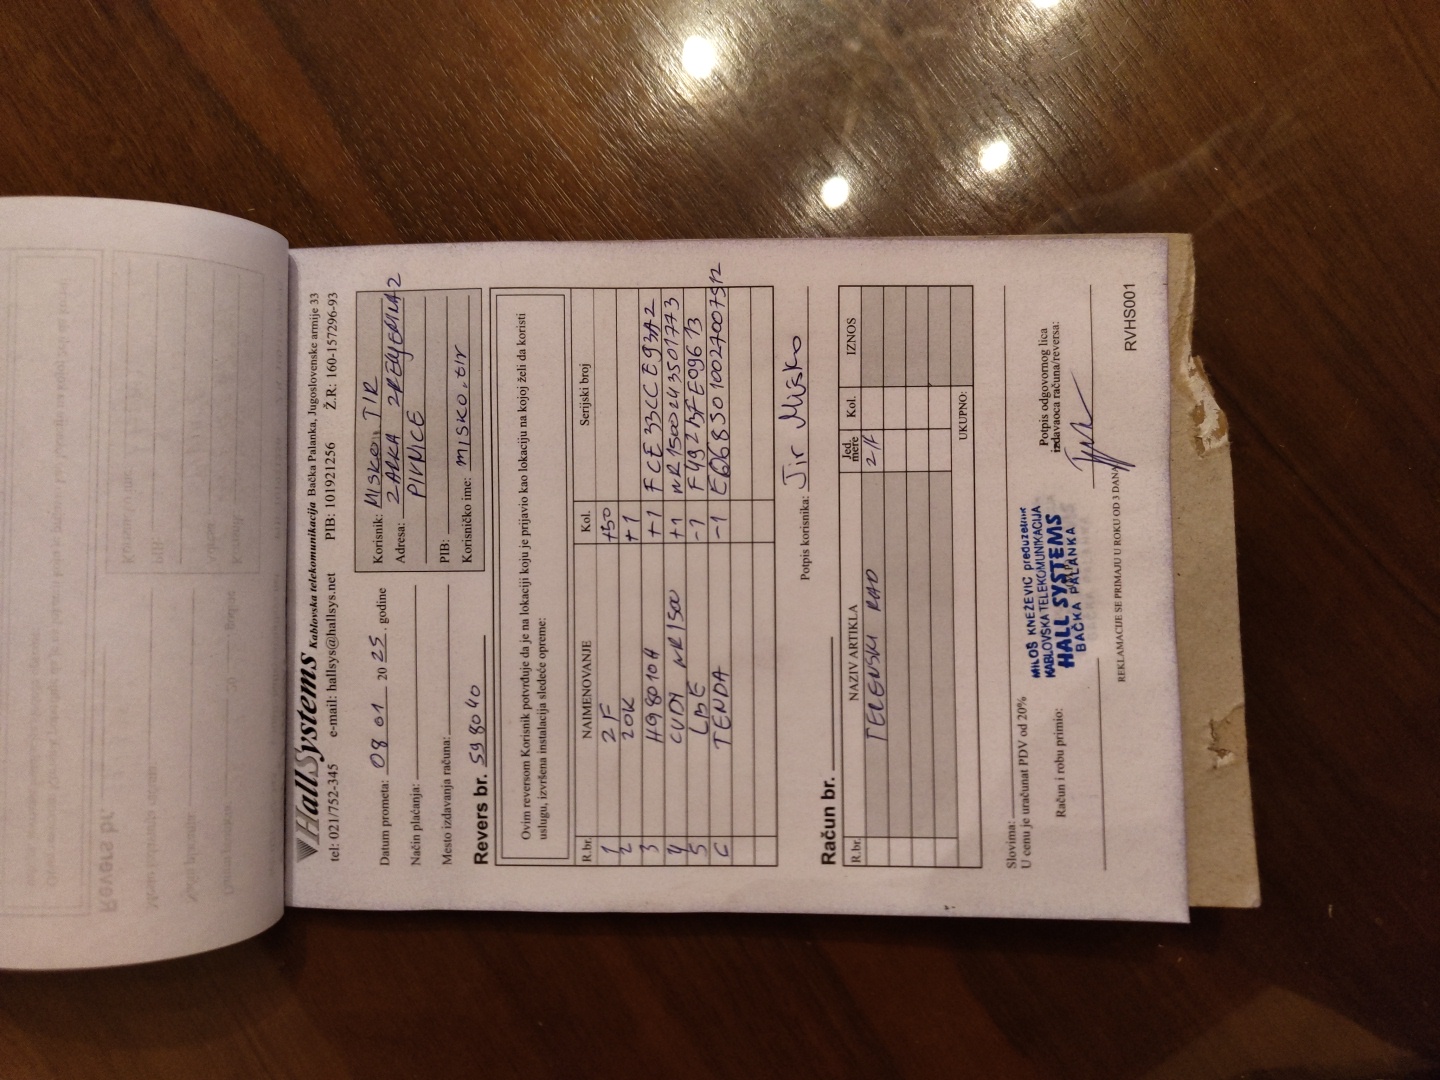 HallSystems Kablovska telekomunikacija Bačka Palanka, Jugoslovenske armije 33
tel: 021/752-345 e-mail: hallsys@hallsys.net PIB: 101921256 Ž.R: 160-157296-93
Datum prometa: 08 01 2025. godine
Način plaćanja:
Mesto izdavanja računa:
Korisnik: MISKO TIR
Adresa: ZARKA ZRENJANINA 2
PIVNICE
PIB:
Korisničko ime: misko.tir
Revers br. 598040
Ovim reversom Korisnik potvrđuje da je na lokaciji koju je prijavio kao lokaciju na kojoj želi da koristi
uslugu, izvršena instalacija sledeće opreme:
R.br. NAIMENOVANJE Kol. Serijski broj
1 2F +50
2 20K +1
3 H98010H +1 FCE33CCE93A2
4 CUDY WR1500 +1 WR1500243501773
5 LBE -1 F492BFE09673
6 TENDA -1
Potpis korisnika: Jir Misko
Račun br.
R.br. NAZIV ARTIKLA Jed. mere Kol. IZNOS
TERENSKI RAD 2/F
UKUPNO:
Slovima:
U cenu je uračunat PDV od 20%
Račun i robu primio:
MILOŠ KNEŽEVIĆ preduzetnik
KABLOVSKA TELEKOMUNIKACIJA
HALL SYSTEMS
BAČKA PALANKA
Potpis odgovornog lica
izdavaoca računa/reversa:
REKLAMACIJE SE PRIMAJU U ROKU OD 3 DANA
RVHS001